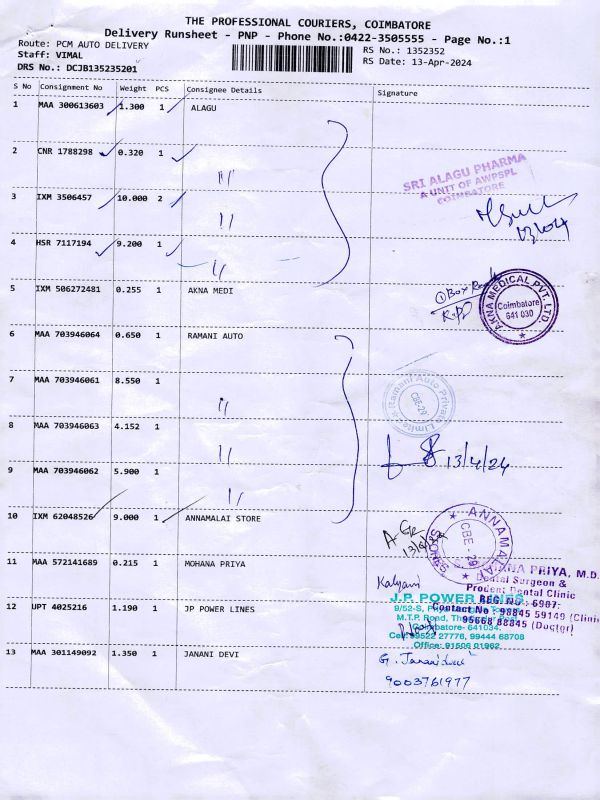 THE PROFESSIONAL COURIERS, COIMBATORE
Delivery Runsheet - PNP - Phone No.:0422-3505555 - Page No.:1
Route: PCM AUTO DELIVERY
Staff: VIMAL
DRS No.: DCJB135235201
RS No.: 1352352
RS Date: 13-Apr-2024
S No Consignment No Weight PCS Consignee Details Signature
1 MAA 300613603 1.300 1 ALAGU
2 CNR 1788298 0.320 1 "
SRI ALAGU PHARMA
A UNIT OF AWPSPL
COIMBATORE
3 IXM 3506457 10.000 2 "
4 HSR 7117194 9.200 1 "
5 IXM 506272481 0.255 1 AKNA MEDI
AKNA MEDICAL PVT. LTD.
Coimbatore
641 030
6 MAA 703946064 0.650 1 RAMANI AUTO
7 MAA 703946061 8.550 1 "
Ramani Auto Private Limite
CBE-29
8 MAA 703946063 4.152 1 "
13/4/24
9 MAA 703946062 5.900 1 "
10 IXM 62048526 9.000 1 ANNAMALAI STORE
ANNAMALAI STORES
CBE-29
11 MAA 572141689 0.215 1 MOHANA PRIYA
ANA PRIYA, M.D.
Dental Surgeon &
Dental Clinic
Reg No: 6907
Contact No: 98845 59149 (Clinic
95668 88845 (Doctor)
Kalyani
12 UPT 4025216 1.190 1 JP POWER LINES
J.P. POWER LINES
9/52-S,
M.T.P. Road,
Coimbatore- 641034.
Cell: 99522 27776, 99444 68708
Office: 91506 01962
13 MAA 301149092 1.350 1 JANANI DEVI
G. Janani devi
9003761977